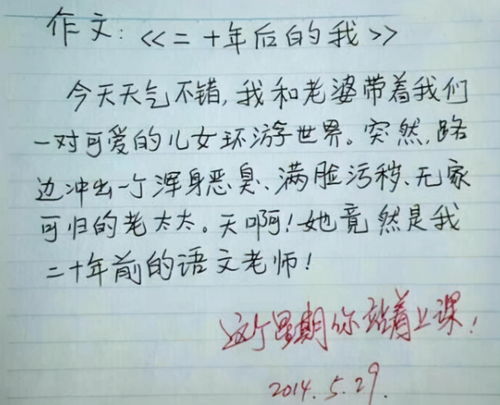 作文：《二十年后的我》
今天天气不错，我和老婆带着我们
一对可爱的儿女环游世界。突然，路
边冲出一个浑身恶臭、满脸污秽、无家
可归的老太太。天啊！她竟然是我
二十年前的语文老师！
这个星期你站着上课！
2014.5.29.